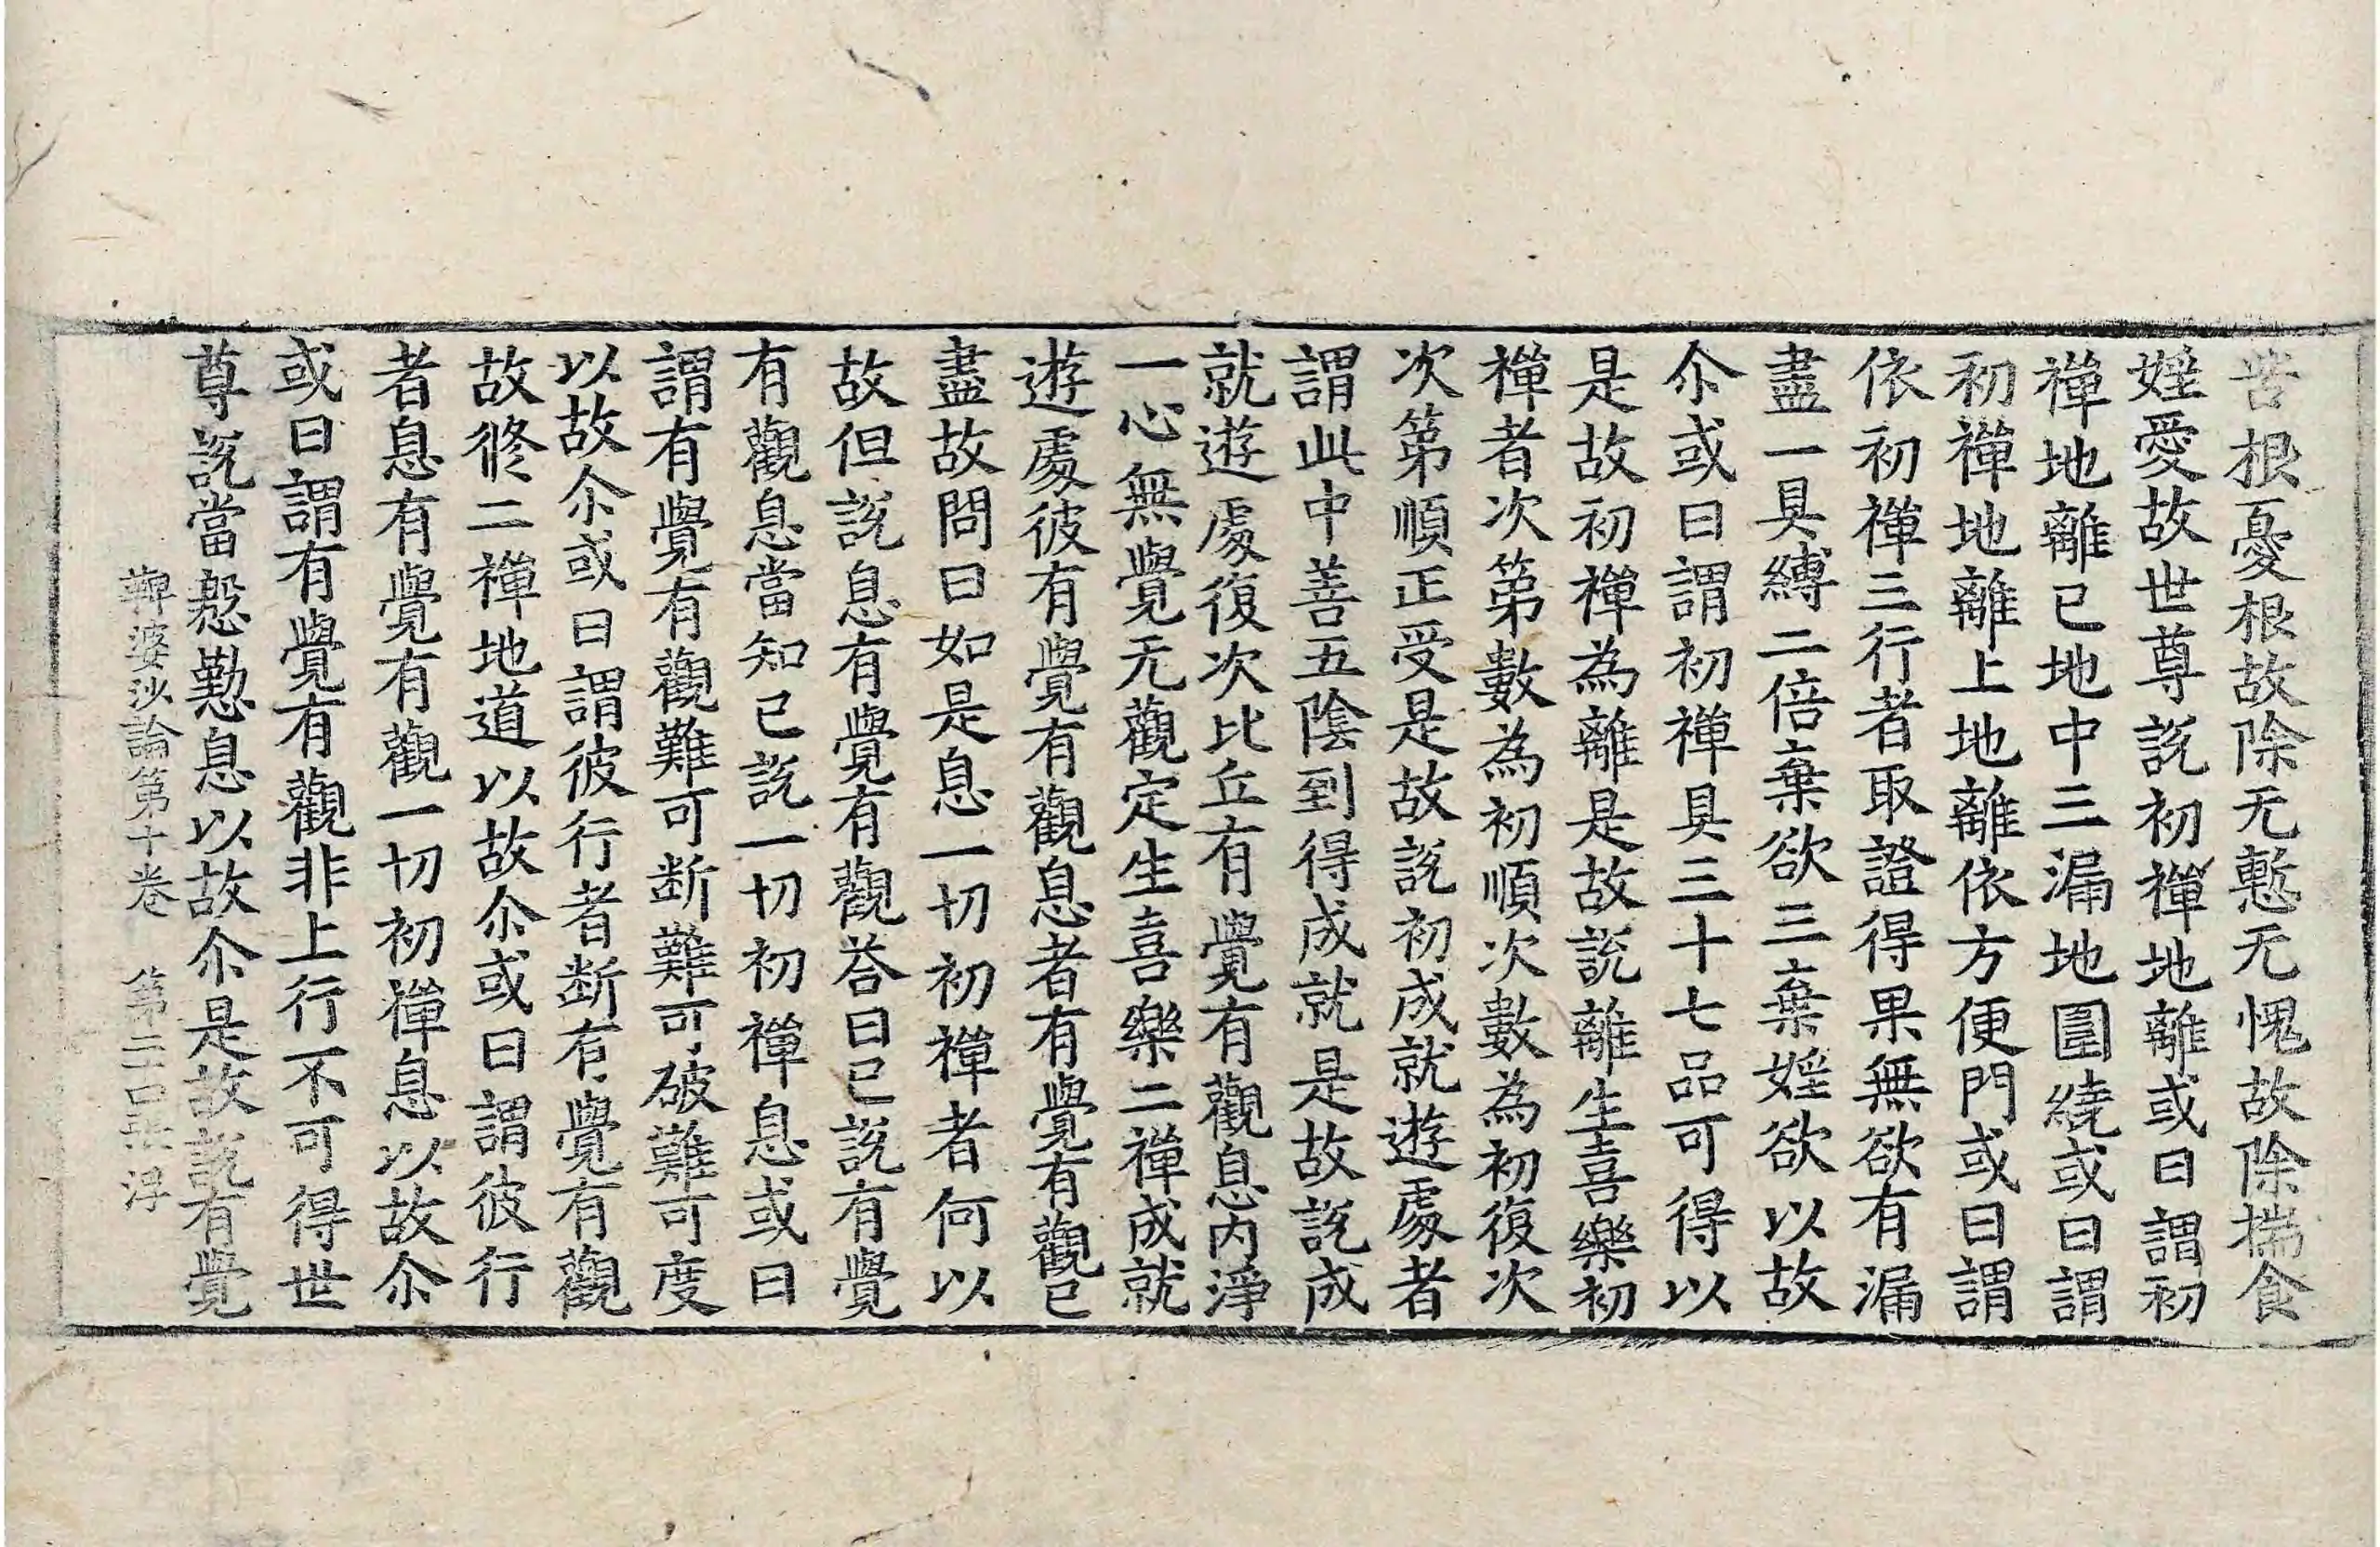 苦根憂根故除无慙无愧故除揣食
婬愛故世尊說初禪地離或曰謂初
禪地離已地中三漏地圍繞或曰謂
初禪地離上地離依方便門或曰謂
依初禪三行者取證得果無欲有漏
盡一具縛二倍棄欲三棄婬欲以故
尒或曰謂初禪具三十七品可得以
是故初禪為離是故說離生喜樂初
禪者次第數為初順次數為初復次
次第順正受是故說初成就遊處者
謂此中善五陰到得成就是故說成
就遊處復次比丘有覺有觀息內淨
一心無覺无觀定生喜樂二禪成就
遊處彼有覺有觀息者有覺有觀已
盡故問曰如是息一切初禪者何以
故但說息有覺有觀荅曰已說有覺
有觀息當知已說一切初禪息或曰
謂有覺有觀難可断難可破難可度
以故尒或曰謂彼行者断有覺有觀
故修二禪地道以故尒或曰謂彼行
者息有覺有觀一切初禪息以故尒
或曰謂有覺有觀非上行不可得世
尊說當慇懃息以故尒是故說有覺
鞞婆沙論第十卷 第二 浮